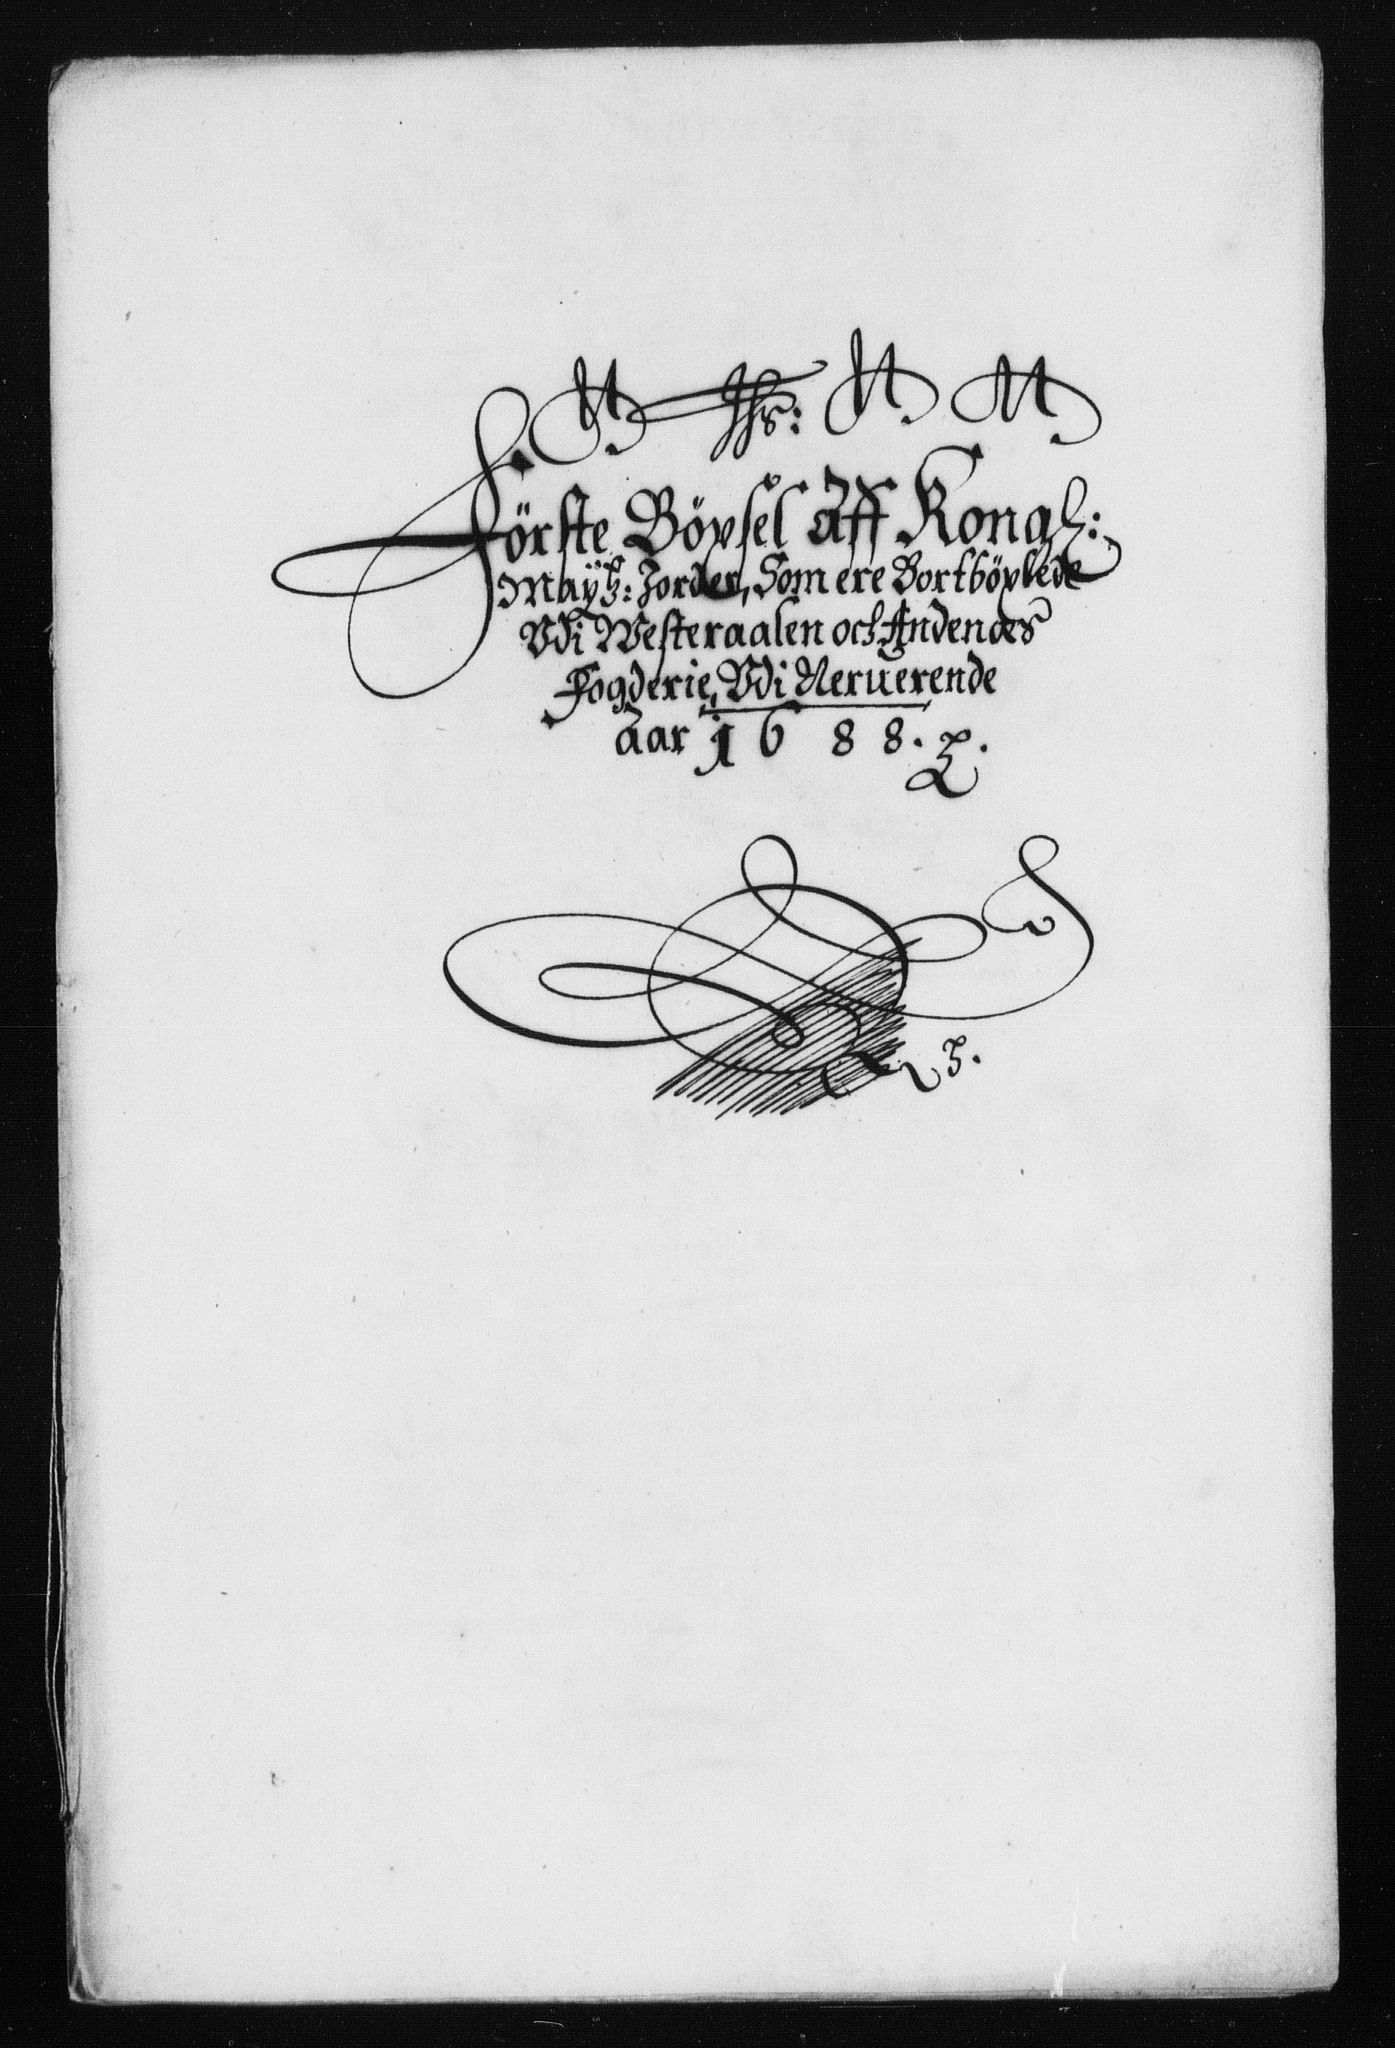 N. Jhs: N. N.
Förste Böxsel Aff Kongl:
Mayts: Jorder, Som ere Bortböxlede
Vdi Westeraalen och Andenæs
Fogderie, Vdi Neruerende
Aar 1688.